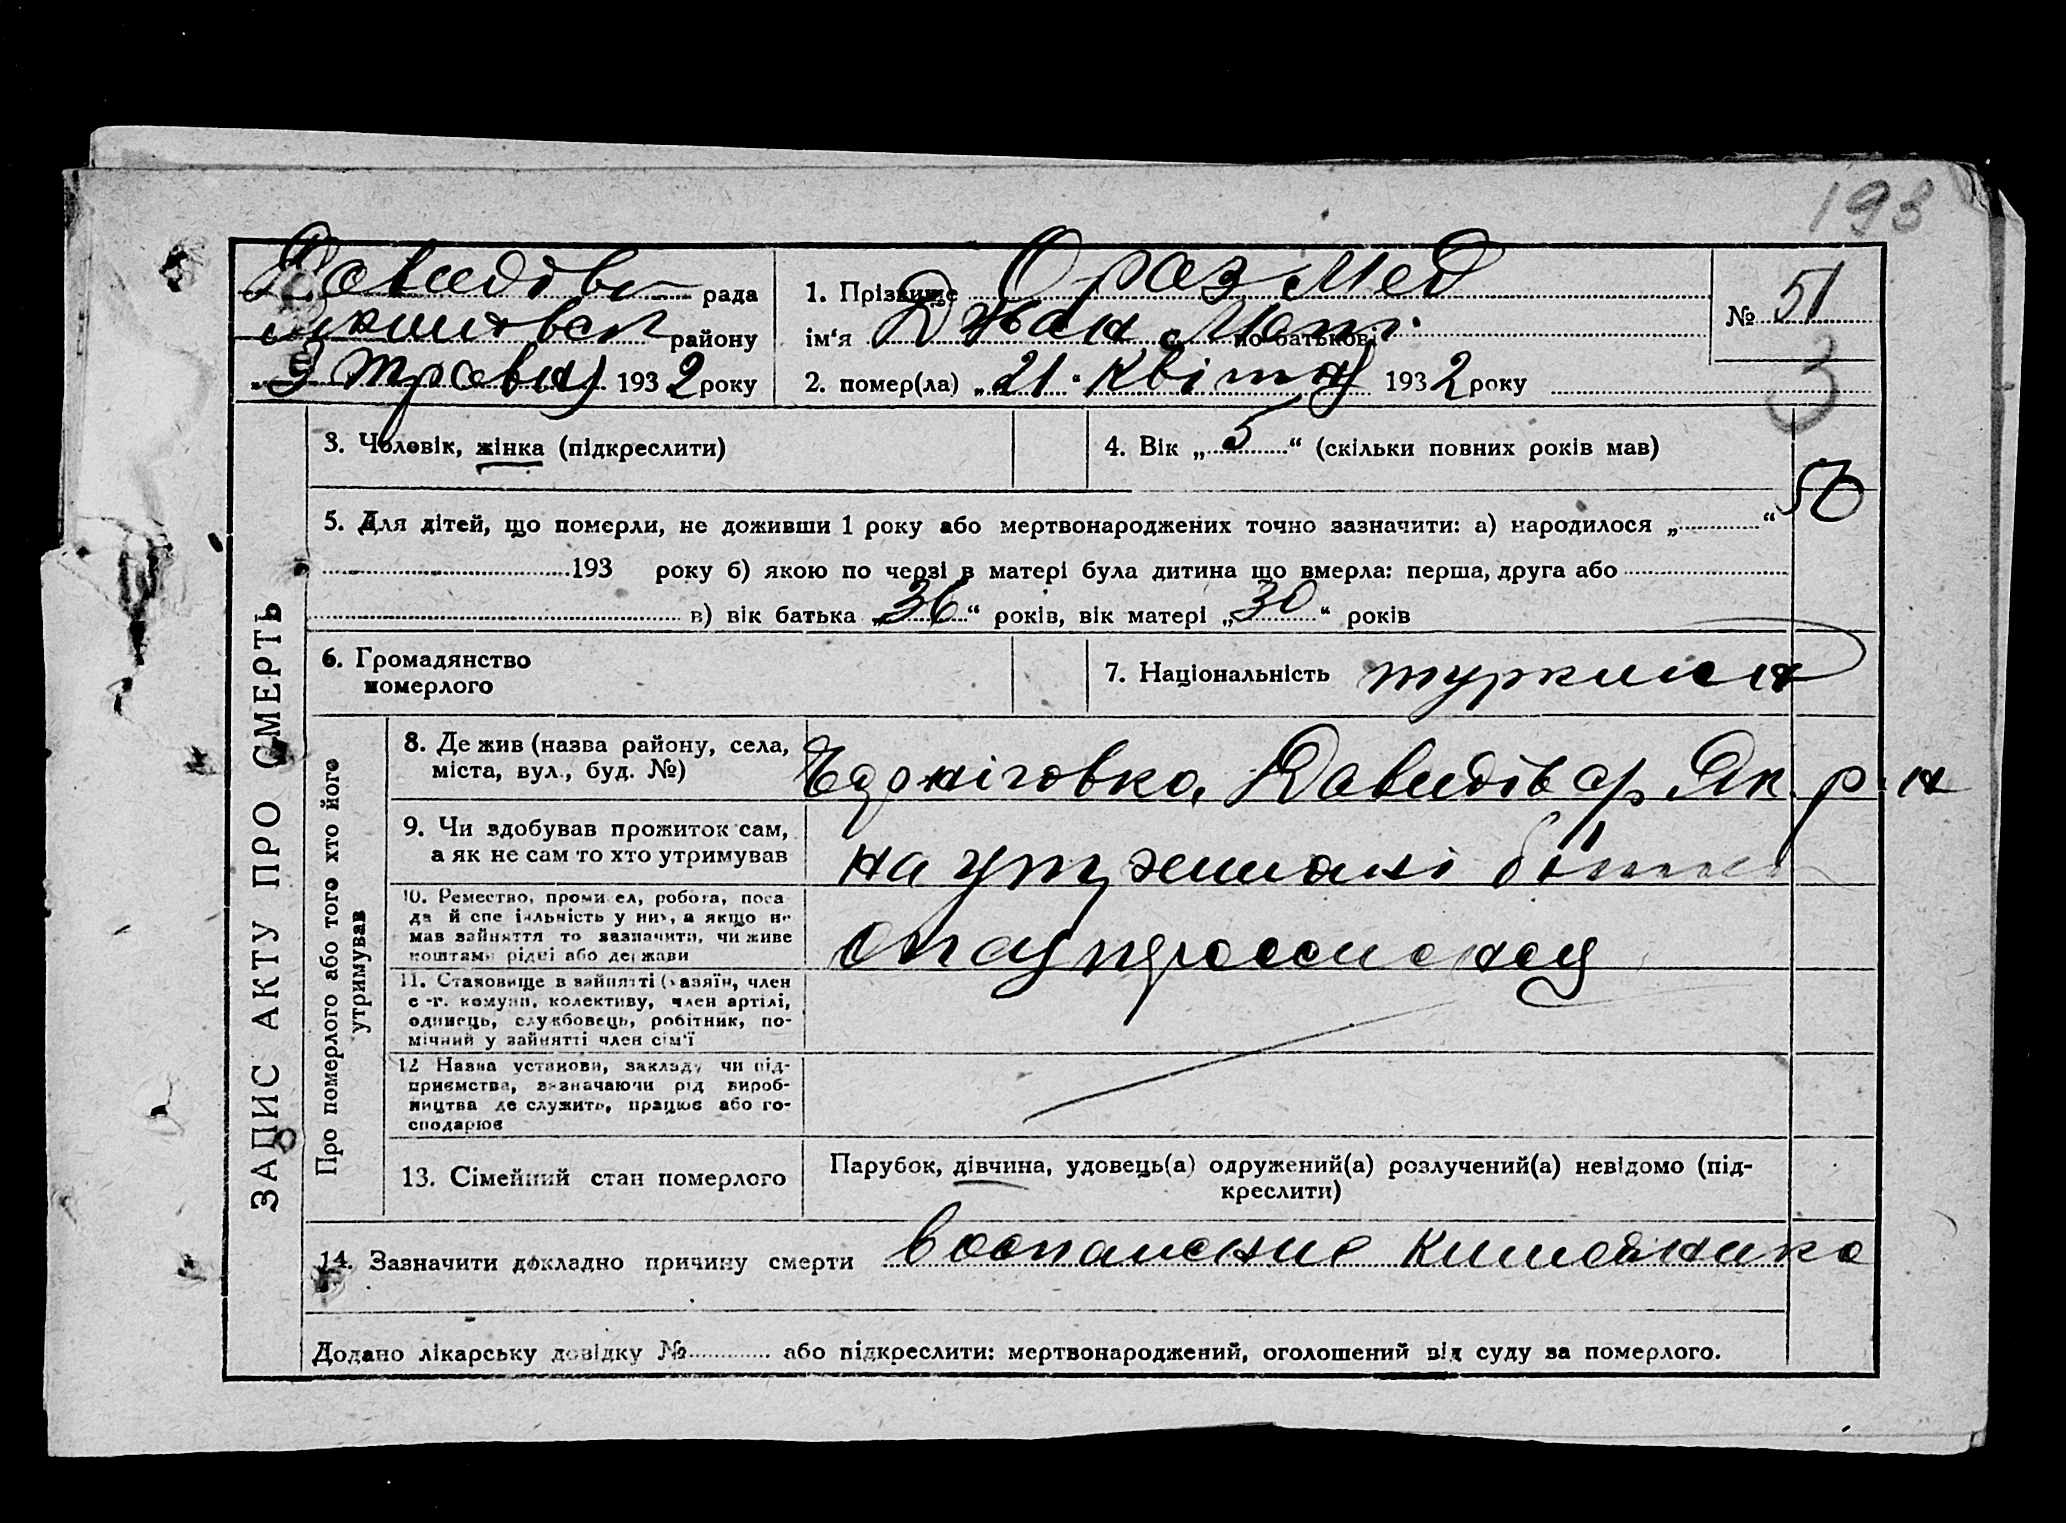 193
Давидівсь рада
району
3 травня 1932 року
1. Прізвище Ораз Мед
ім'я Джан по батькові
2. помер(ла) „21" квітня 1932 року
№ 51
3
3. Чоловік, жінка (підкреслити)
4. Вік „5" (скільки повних років мав)
56
5. Для дітей, що померли, не доживши 1 року або мертвонароджених точно зазначити: а) народилося „ "
193 року б) якою по черзі в матері була дитина що вмерла: перша, друга або
в) вік батька „36" років, вік матері „30" років
6. Громадянство
померлого
7. Національність туркмен
ЗАПИС АКТУ ПРО СМЕРТЬ
Про померлого або того хто його
утримував
8. Де жив (назва району, села,
міста, вул., буд. №)
Давидів с/р Як. р-н
9. Чи здобував прожиток сам,
а як не сам то хто утримував
на утриманні
10. Ремество, проми ел, робота, поса
да й спе іяльність у них, а якщо не
мав зайняття то зазначити, чи живе
коштами рідні або держави
11. Становище в зайнятті (хазяїн, член
с-г. комуни, колективу, член артілі,
одинець, службовець, робітник, по-
мічний у зайнятті член сім'ї
12 Назва установи, закладу чи під-
приємства, зазначаючи рід вироб-
ництва де служить, працює або го-
сподарює
13. Сімейний стан померлого
Парубок, дівчина, удовець(а) одружений(а) розлучений(а) невідомо (під-
креслити)
14. Зазначити докладно причину смерти воспаление кишечника
Додано лікарську довідку № або підкреслити: мертвонароджений, оголошений від суду за померлого.